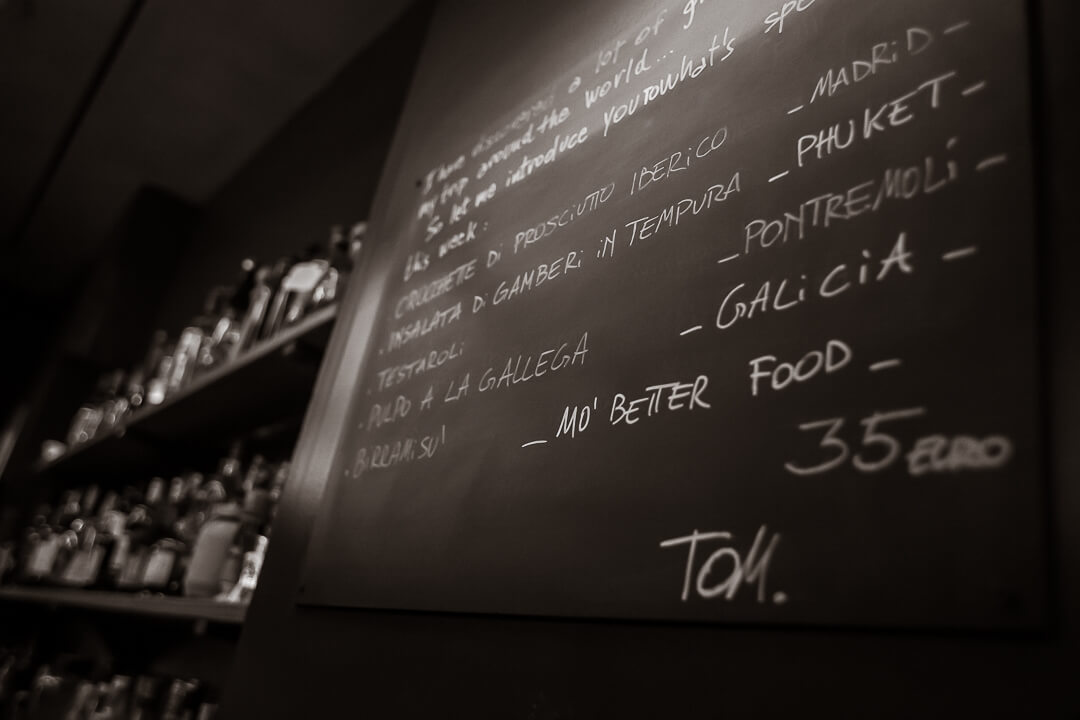 I have discovered a lot of
my trip around the world...
So let me introduce you to what's
this week:
CROCCHETE Di PROSCiUTTO IBERiCO _ MADRiD -
. INSALATA Di GAMBERi iN TEMPURA _ PHUKET -
. TESTAROLi _ PONTREMOLi -
. PULPO A LA GALLEGA _ GALiCiA -
. BiRRAMiSU' _ MO' BETTER FOOD -
35 EURO
TOM.